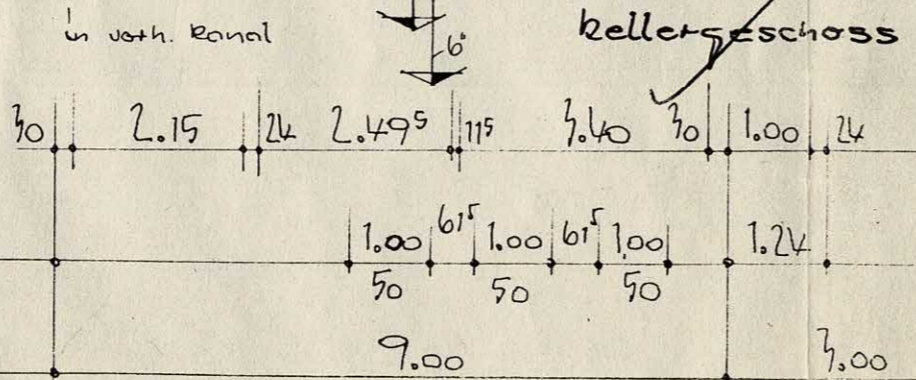 in vorh. Kanal
6°
Kellergeschoss
30 2.15 24 2.49⁵ 11⁵ 3.40 30 1.00 24
1.00 61⁵ 1.00 61⁵ 1.00 1.24
50 50 50
9.00 3.00